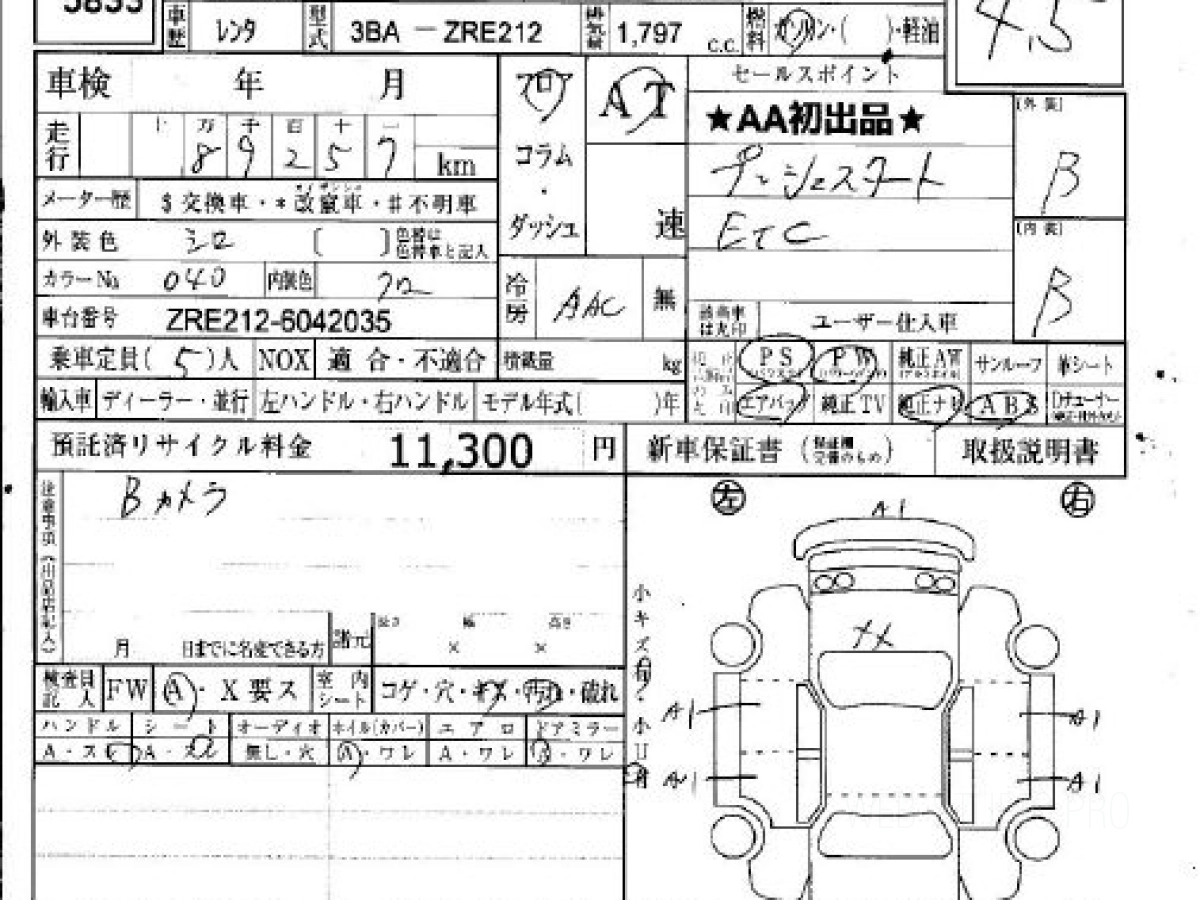 5833
車歴 レンタ 型式 3BA － ZRE212 排気量 1,797 c.c. 燃料 ガソリン・( )・軽油
4.5
車検 年 月
フロア
コラム
・
ダッシュ
AT
速
走行 十 万8 千9 百2 十5 一7 km
メーター歴 $交換車・*改竄車・#不明車
外装色 シロ [ ] 色替は色替車と記入
カラーNo. 040 内装色 クロ
車台番号 ZRE212-6042035
冷房 AAC 無
セールスポイント
★AA初出品★
プッシュスタート
ETC
[外装] B
[内装] B
該当車は丸印 ユーザー仕入車
乗車定員( 5 )人 NOX 適合・不適合 積載量 kg
PS PW 純正AW サンルーフ 革シート
輸入車 ディーラー・並行 左ハンドル・右ハンドル モデル年式( )年
エアバッグ 純正TV 純正ナビ ABS
預託済リサイクル料金 11,300 円 新車保証書 取扱説明書
注意事項（出品店記入）
Bカメラ
月 日までに名変できる方 諸元 長さ × 幅 × 高さ
検査員記入 FW A・X要ス 室内シート コゲ・穴・キズ・汚れ・破れ
ハンドル シート オーディオ ホイル(カバー) エアロ ドアミラー
無し・穴 A・ワレ A・ワレ A・ワレ
左 右
A1
小キズ有・小U有
A1 A1
A1 A1